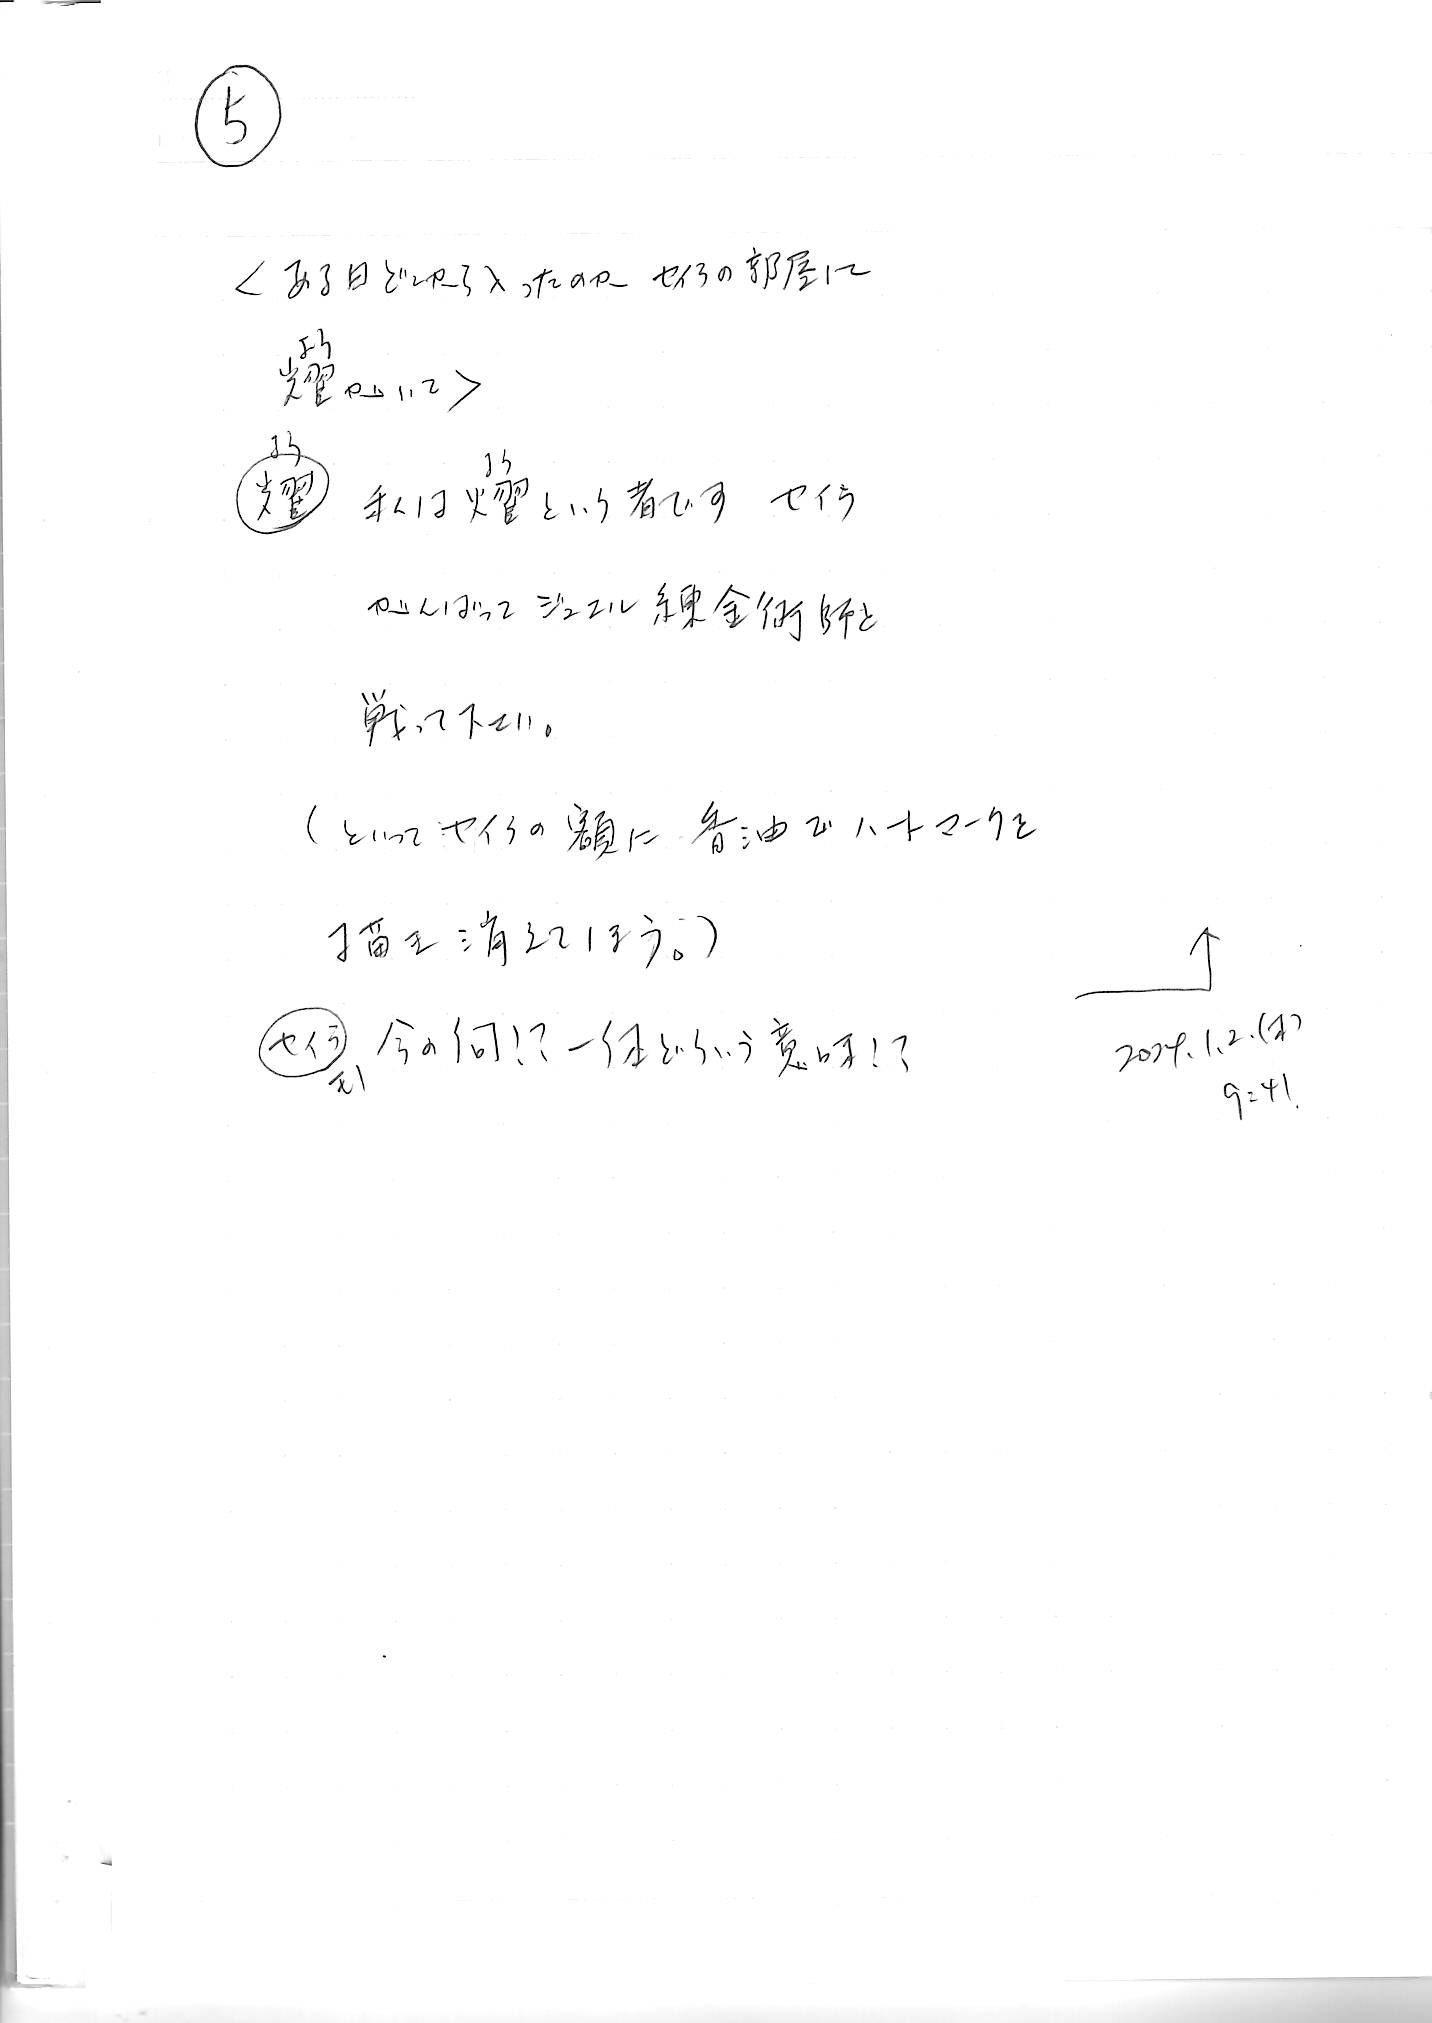 5
<ある日どこから入ったのか セイラの部屋に
よう
耀がいて>
よう よう
耀 私は耀という者です セイラ
がんばってジュエル練金術師と
戦って下さい。
(といってセイラの額に香油でハートマークを
描き消えてしまう。)
セイラ 今の何!?一体どういう意味!?
モノ
2024.1.2.(火)
9:41.